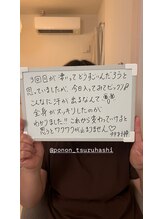 3回目が凄いってどうなんだろうと
思っていましたが、今日入っておどビックリ!!
こんなに汗か出るなんて
全身がスッキリしたのが
わかりました!!これから変わっていけると
思うとワクワクが止まりません♡
@ponon_tsuruhashi